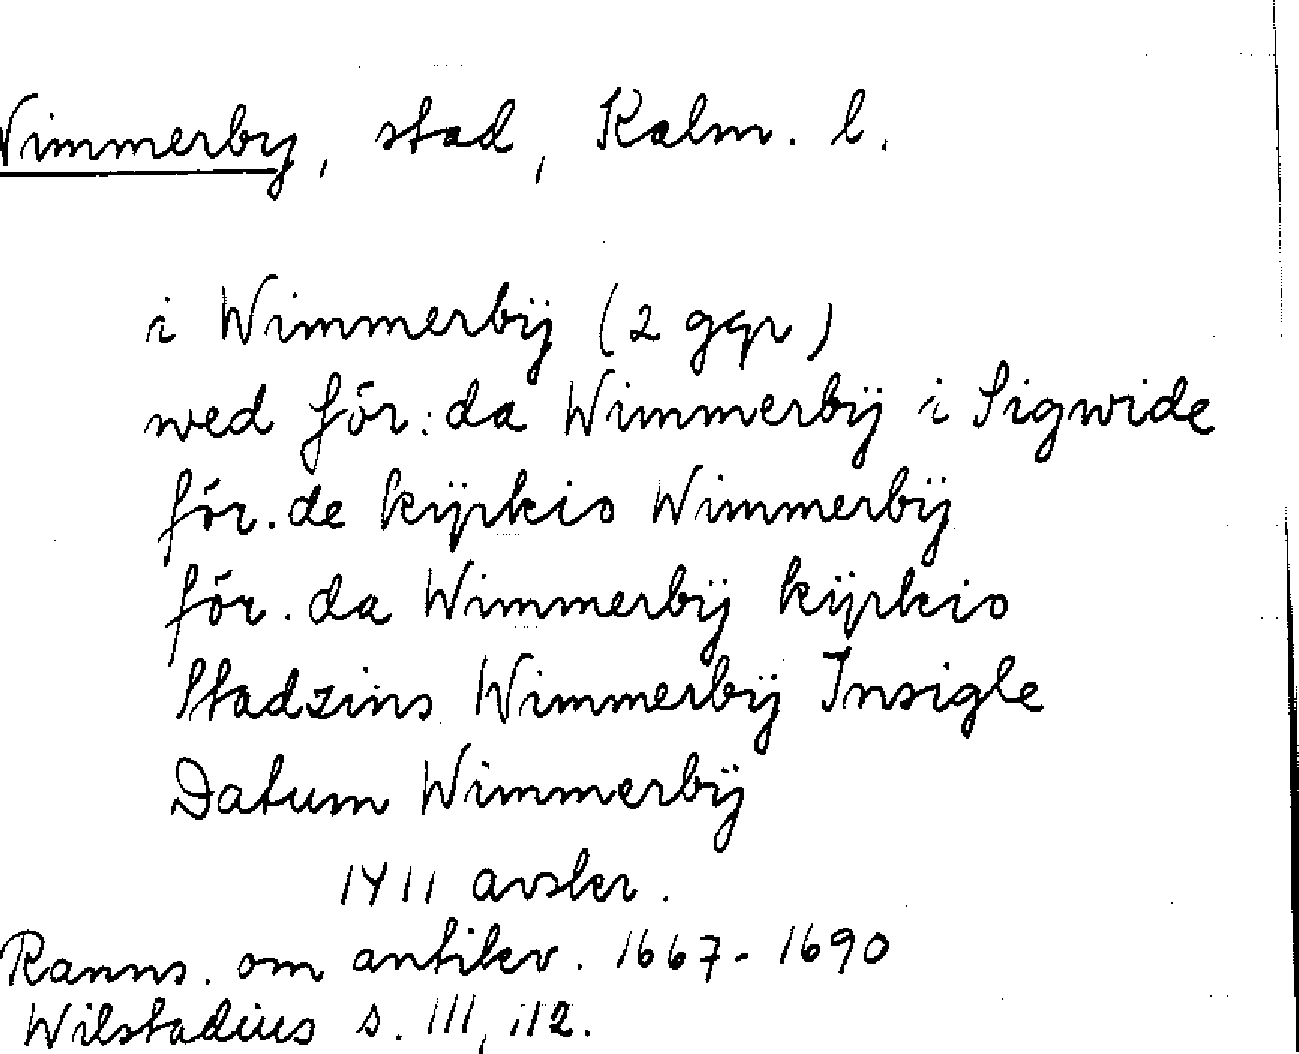 Vimmerby, stad, Kalm. l.
i Wimmerbÿ (2 ggr)
wed för:da Wimmerbÿ i Sigwide
för.de kÿrkio Wimmerbÿ
för.da Wimmerbÿ kÿrkio
Stadzins Wimmerbÿ Insigle
Datum Wimmerbÿ
1411 avskr.
Ranns. om antikv. 1667-1690
Wilstadius s. 111, 112.